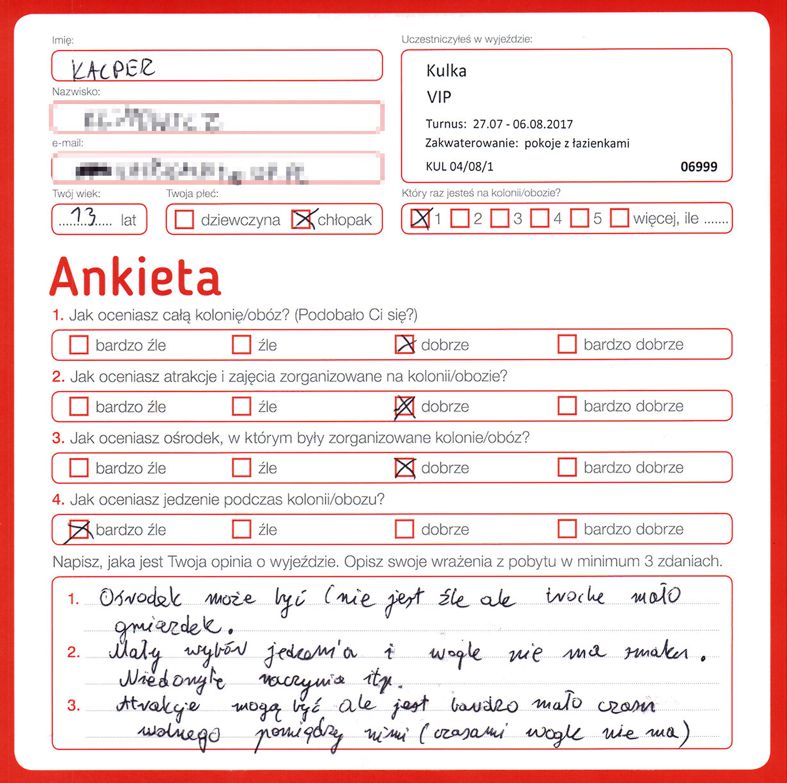 Imię:
KACPER
Nazwisko:
e-mail:
Twój wiek:
13 lat
Twoja płeć:
dziewczyna chłopak
Uczestniczyłeś w wyjeździe:
Kulka
VIP
Turnus: 27.07 - 06.08.2017
Zakwaterowanie: pokoje z łazienkami
KUL 04/08/1 06999
Który raz jesteś na kolonii/obozie?
1 2 3 4 5 więcej, ile .......
Ankieta
1. Jak oceniasz całą kolonię/obóz? (Podobało Ci się?)
bardzo źle źle dobrze bardzo dobrze
2. Jak oceniasz atrakcje i zajęcia zorganizowane na kolonii/obozie?
bardzo źle źle dobrze bardzo dobrze
3. Jak oceniasz ośrodek, w którym były zorganizowane kolonie/obóz?
bardzo źle źle dobrze bardzo dobrze
4. Jak oceniasz jedzenie podczas kolonii/obozu?
bardzo źle źle dobrze bardzo dobrze
Napisz, jaka jest Twoja opinia o wyjeździe. Opisz swoje wrażenia z pobytu w minimum 3 zdaniach.
1. Ośrodek może być (nie jest źle ale troche mało
gniazdek.
2. Mały wybór jedzenia i wogle nie ma smaku.
Niedomyte naczynia itp.
3. Atrakcje mogą być ale jest bardzo mało czasu
wolnego pomiędzy nimi (czasami wogle nie ma)